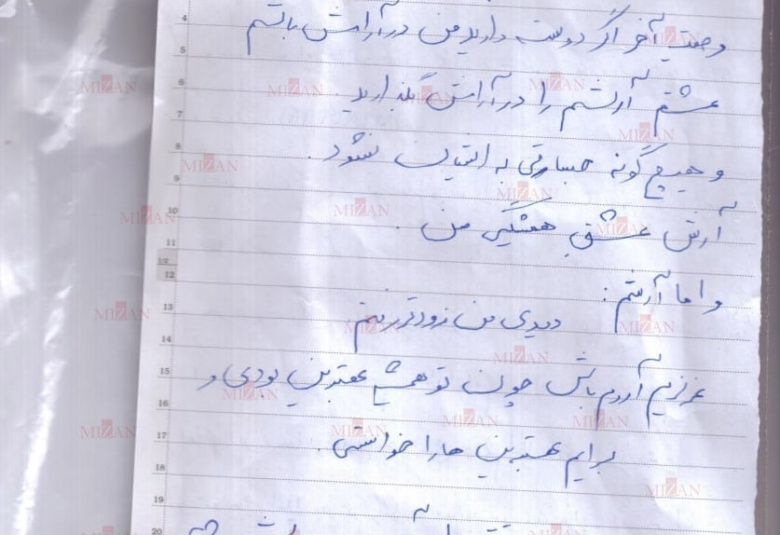 وصیت آخر اگر دوست دارید من در آرامش باشم
عشقم آرشم را در آرامش بگذارید
و هیچ گونه جسارتی به ایشان نشود.
آرش عشق همیشگی من.
و اما آرشم:
دیدی من زودتر رفتم
عزیزم آروم باش چون تو همیشه بهترین بودی و
برایم بهترین ها را خواستی.
4
5
6
7
8
9
10
11
12
13
14
15
16
17
18
19
20
MIZAN